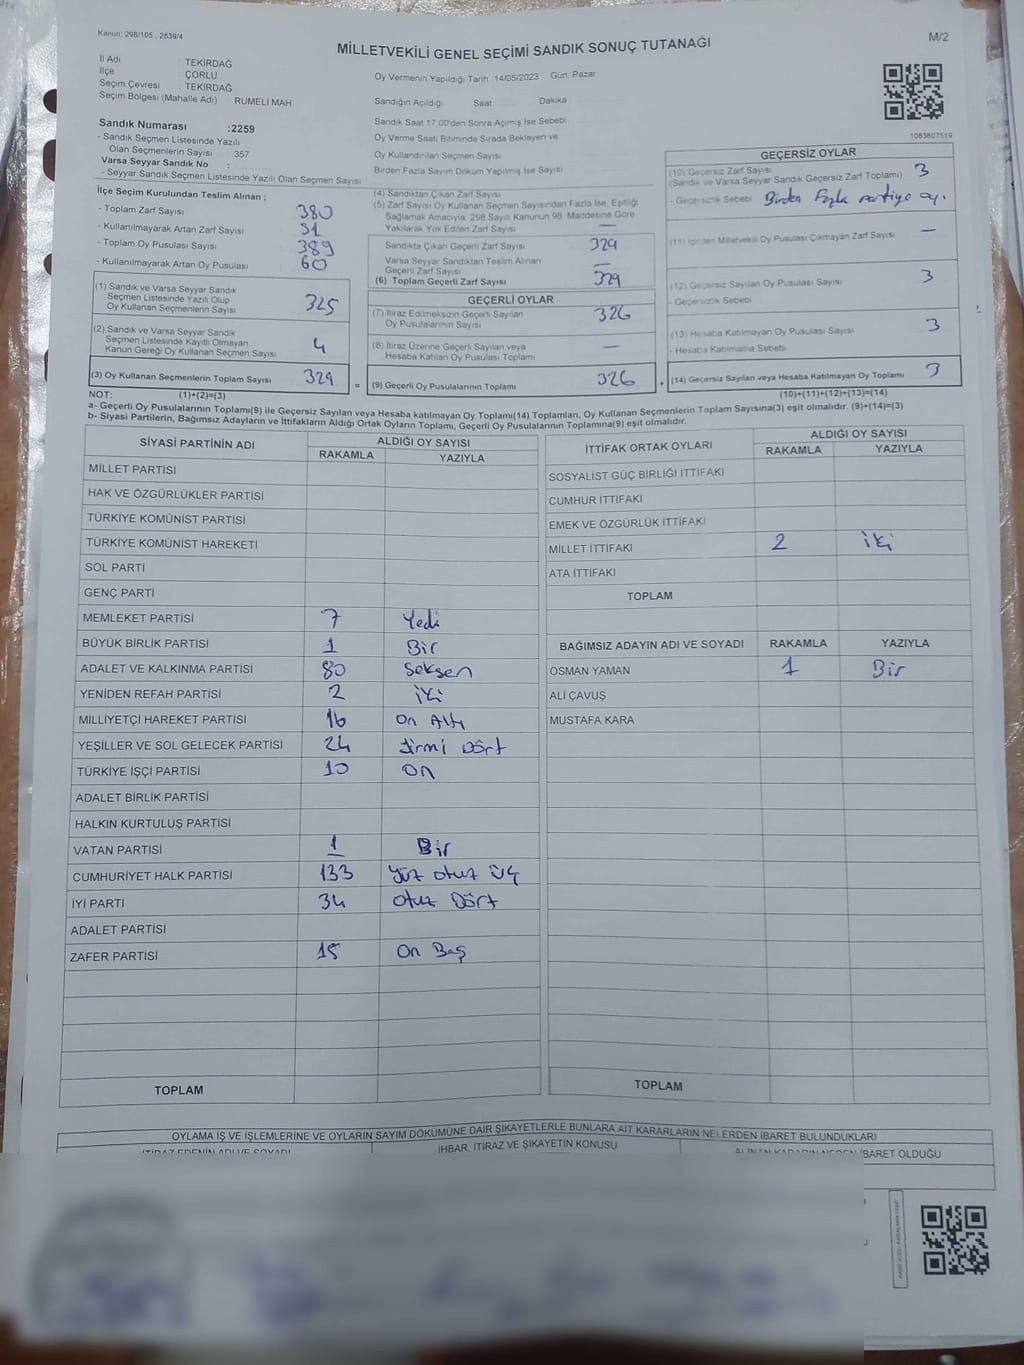 Kanun: 298/105 , 2839/4
MİLLETVEKİLİ GENEL SEÇİMİ SANDIK SONUÇ TUTANAĞI
M/2
İl Adı : TEKİRDAĞ
İlçe : ÇORLU
Seçim Çevresi : TEKİRDAĞ
Seçim Bölgesi (Mahalle Adı) RUMELİ MAH.
Sandık Numarası :2259
- Sandık Seçmen Listesinde Yazılı
Olan Seçmenlerin Sayısı : 357
Varsa Seyyar Sandık No :
- Seyyar Sandık Seçmen Listesinde Yazılı Olan Seçmen Sayısı:
Oy Vermenin Yapıldığı Tarih :14/05/2023 Gün: Pazar
Sandığın Açıldığı Saat Dakika
Sandık Saat 17.00'den Sonra Açımış İse Sebebi
Oy Verme Saati Bitiminde Sırada Bekleyen ve
Oy Kullandırılan Seçmen Sayısı
Birden Fazla Sayım Döküm Yapılmış İse Sayısı
1083807519
İlçe Seçim Kurulundan Teslim Alınan ;
- Toplam Zarf Sayısı 380
- Kullanılmayarak Artan Zarf Sayısı 51
- Toplam Oy Pusulası Sayısı 389
- Kullanılmayarak Artan Oy Pusulası 60
(1) Sandık ve Varsa Seyyar Sandık
Seçmen Listesinde Yazılı Olup
Oy Kullanan Seçmenlerin Sayısı 325
(2) Sandık ve Varsa Seyyar Sandık
Seçmen Listesinde Kayıtlı Olmayan
Kanun Gereği Oy Kullanan Seçmen Sayısı 4
(3) Oy Kullanan Seçmenlerin Toplam Sayısı 329 =
(4) Sandıktan Çıkan Zarf Sayısı
(5) Zarf Sayısı Oy Kullanan Seçmen Sayısından Fazla İse, Eşitliği
Sağlamak Amacıyla, 298 Sayılı Kanunun 98. Maddesine Göre
Yakılarak Yok Edilen Zarf Sayısı —
Sandıkta Çıkan Geçerli Zarf Sayısı 329
Varsa Seyyar Sandıktan Teslim Alınan
Geçerli Zarf Sayısı —
(6) Toplam Geçerli Zarf Sayısı 329
GEÇERLİ OYLAR
(7) İtiraz Edilmeksizin Geçerli Sayılan
Oy Pusulalarının Sayısı 326
(8) İtiraz Üzerine Geçerli Sayılan veya
Hesaba Katılan Oy Pusulası Toplamı —
(9) Geçerli Oy Pusulalarının Toplamı 326 +
GEÇERSİZ OYLAR
(10) Geçersiz Zarf Sayısı 3
(Sandık ve Varsa Seyyar Sandık Geçersiz Zarf Toplamı)
- Geçersizlik Sebebi Birden Fazla partiye oy.
(11) İçinden Milletvekili Oy Pusulası Çıkmayan Zarf Sayısı —
(12) Geçersiz Sayılan Oy Pusulası Sayısı 3
- Geçersizlik Sebebi
(13) Hesaba Katılmayan Oy Pusulası Sayısı 3
- Hesaba Katılmama Sebebi
(14) Geçersiz Sayılan veya Hesaba Katılmayan Oy Toplamı 3
NOT: (1)+(2)=(3) (10)+(11)+(12)+(13)=(14)
a- Geçerli Oy Pusulalarının Toplamı(9) ile Geçersiz Sayılan veya Hesaba katılmayan Oy Toplamı(14) Toplamları, Oy Kullanan Seçmenlerin Toplam Sayısına(3) eşit olmalıdır. (9)+(14)=(3)
b- Siyasi Partilerin, Bağımsız Adayların ve İttifakların Aldığı Ortak Oyların Toplamı, Geçerli Oy Pusulalarının Toplamına(9) eşit olmalıdır.
SİYASİ PARTİNİN ADI ALDIĞI OY SAYISI
RAKAMLA YAZIYLA
MİLLET PARTİSİ
HAK VE ÖZGÜRLÜKLER PARTİSİ
TÜRKİYE KOMÜNİST PARTİSİ
TÜRKİYE KOMÜNİST HAREKETİ
SOL PARTİ
GENÇ PARTİ
MEMLEKET PARTİSİ 7 Yedi
BÜYÜK BİRLİK PARTİSİ 1 Bir
ADALET VE KALKINMA PARTİSİ 80 Seksen
YENİDEN REFAH PARTİSİ 2 İki
MİLLİYETÇİ HAREKET PARTİSİ 16 On Altı
YEŞİLLER VE SOL GELECEK PARTİSİ 24 Yirmi Dört
TÜRKİYE İŞÇİ PARTİSİ 10 On
ADALET BİRLİK PARTİSİ
HALKIN KURTULUŞ PARTİSİ
VATAN PARTİSİ 1 Bir
CUMHURİYET HALK PARTİSİ 133 Yüz otuz üç
İYİ PARTİ 34 Otuz Dört
ADALET PARTİSİ
ZAFER PARTİSİ 15 On Beş
TOPLAM
İTTİFAK ORTAK OYLARI ALDIĞI OY SAYISI
RAKAMLA YAZIYLA
SOSYALİST GÜÇ BİRLİĞİ İTTİFAKI
CUMHUR İTTİFAKI
EMEK VE ÖZGÜRLÜK İTTİFAKI
MİLLET İTTİFAKI 2 iki
ATA İTTİFAKI
TOPLAM
BAĞIMSIZ ADAYIN ADI VE SOYADI RAKAMLA YAZIYLA
OSMAN YAMAN 1 Bir
ALİ ÇAVUŞ
MUSTAFA KARA
TOPLAM
OYLAMA İŞ VE İŞLEMLERİNE VE OYLARIN SAYIM DÖKÜMÜNE DAİR ŞİKAYETLERLE BUNLARA AİT KARARLARIN NELERDEN İBARET BULUNDUKLARI
İTİRAZ EDENİN ADI VE SOYADI İHBAR, İTİRAZ VE ŞİKAYETİN KONUSU ALINAN KARARIN NEDEN İBARET OLDUĞU